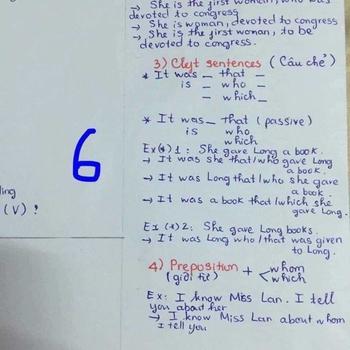 → She is the first woman, who was
devoted to congress
→ She is woman, devoted to congress
→ She is the first woman, to be
devoted to congress.
3) Cleft sentences (Câu chẻ)
* It was _ that _
is _ who _
_ which _
* It was _ that (passive)
is who
which
Ex(*)1: She gave Long a book.
→ It was she that/who gave Long
a book.
→ It was Long that/who she gave
a book.
→ It was a book that/which she
gave Long.
Ex (*)2: She gave Long books.
→ It was Long who/that was given
to Long.
4) Preposition + whom
(giới từ) which
Ex: I know Miss Lan. I tell
you about her
→ I know Miss Lan about whom
I tell you
6
ling
(V)!